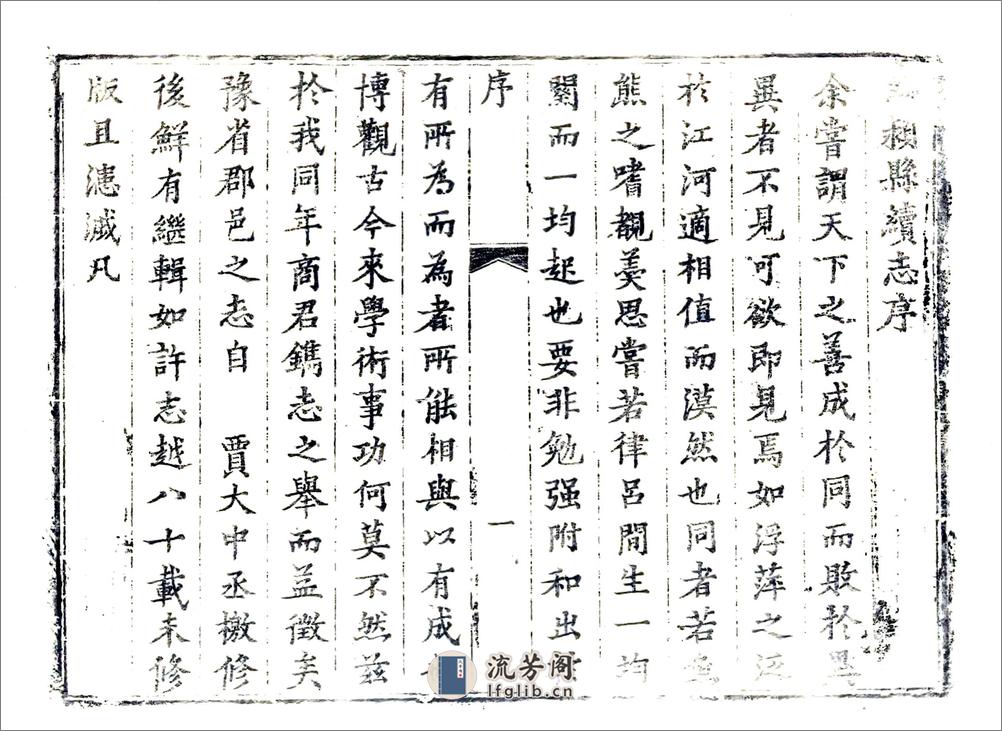 縣續志序
余嘗謂天下之善成於同而敗於異
異者不見可欲即見焉如浮萍之泛
於江河適相值而漠然也同者若
熊之嗜覩羹思嘗若律呂間生一均
闋而一均起也要非勉强附和出
序 一
有所為而為者所能相與以有成
博觀古今來學術事功何莫不然兹
於我同年商君鐫志之舉而益徵矣
豫省郡邑之志自 賈大中丞檄修
後鮮有繼輯如許志越八十載未修
版且漶滅凡
流芳阁
lfglib.cn